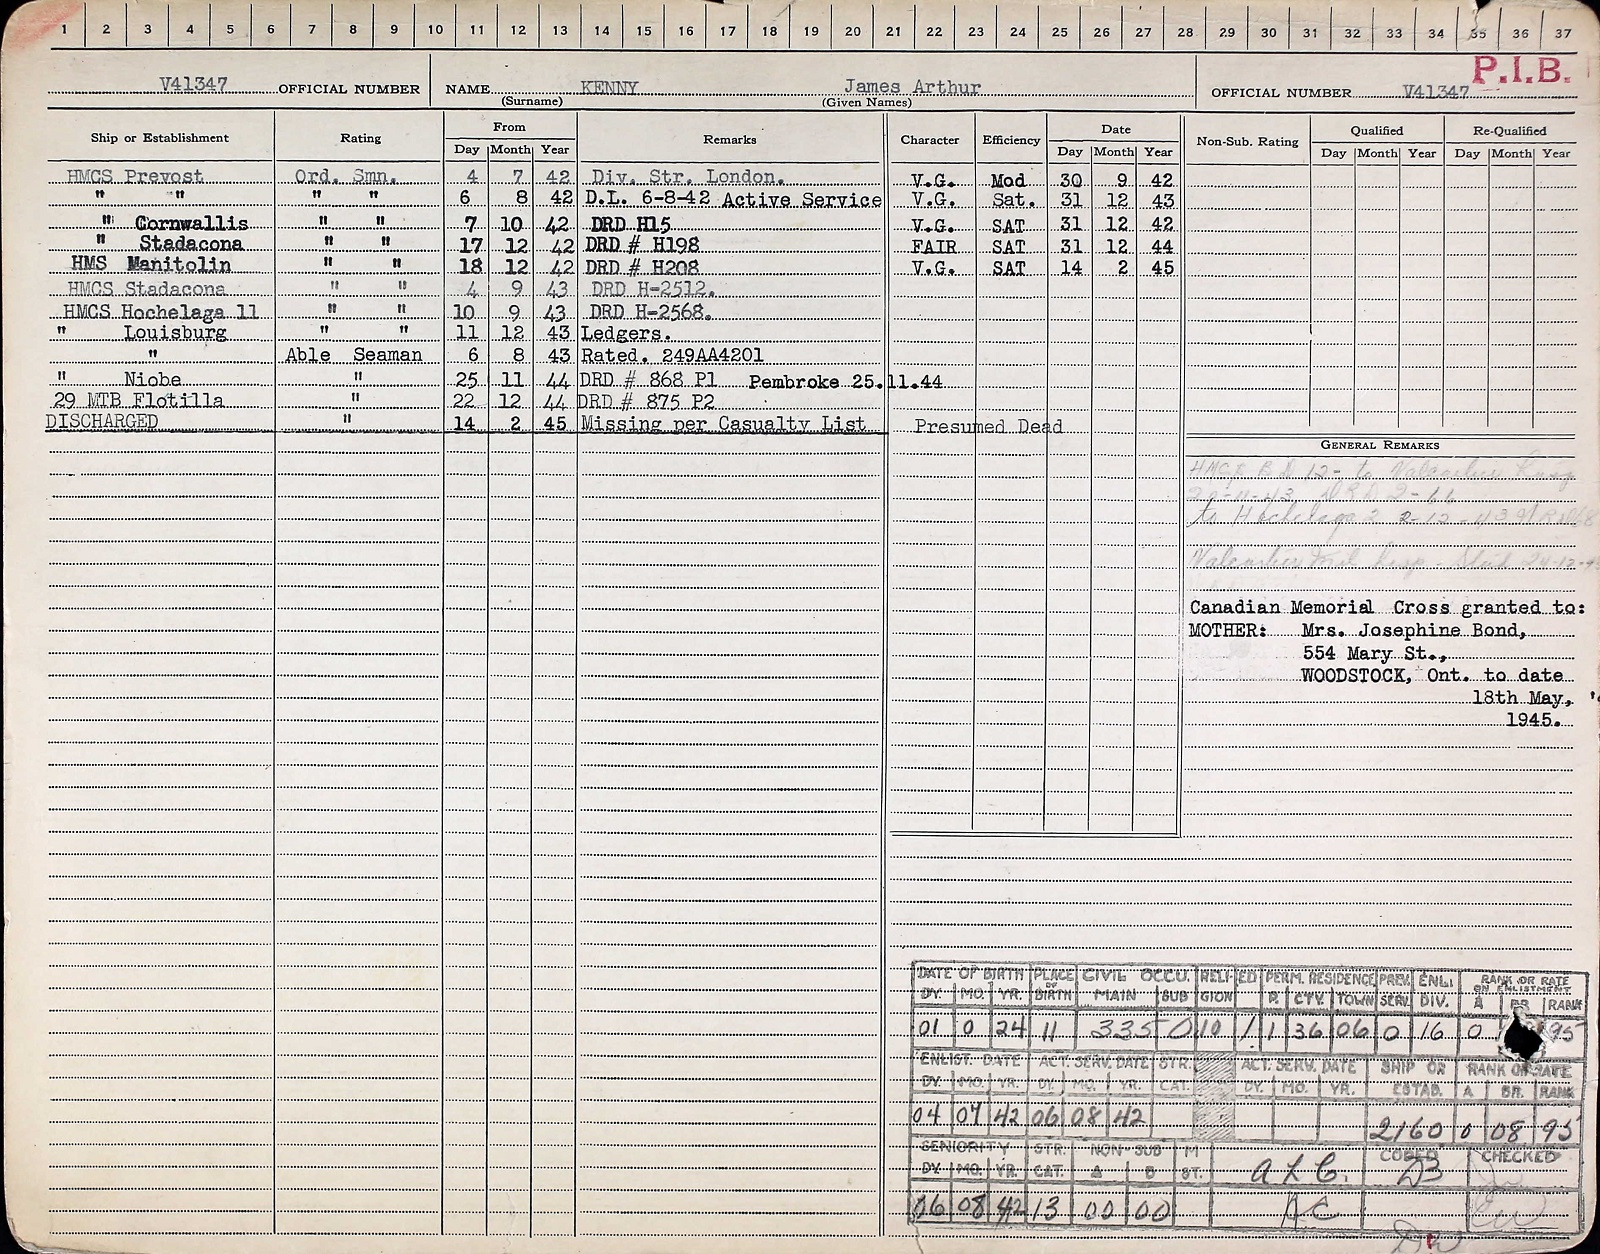 1 2 3 4 5 6 7 8 9 10 11 12 13 14 15 16 17 18 19 20 21 22 23 24 25 26 27 28 29 30 31 32 33 34 35 36 37
P.I.B.
V41347 OFFICIAL NUMBER NAME KENNY James Arthur OFFICIAL NUMBER V41347
(Surname) (Given Names)
Ship or Establishment Rating From Remarks Character Efficiency Date Non-Sub. Rating Qualified Re-Qualified
Day Month Year Day Month Year Day Month Year Day Month Year
HMCS Prevost Ord. Smn. 4 7 42 Div. Str. London. V.G. Mod 30 9 42
" " " " 6 8 42 D.L. 6-8-42 Active Service V.G. Sat. 31 12 43
" Cornwallis " " 7 10 42 DRD H15 V.G. SAT 31 12 42
" Stadacona " " 17 12 42 DRD # H198 FAIR SAT 31 12 44
HMS Manitolin " " 18 12 42 DRD # H208 V.G. SAT 14 2 45
HMCS Stadacona " " 4 9 43 DRD H-2512.
HMCS Hochelaga 11 " " 10 9 43 DRD H-2568.
" Louisburg " " 11 12 43 Ledgers.
" Able Seaman 6 8 43 Rated. 249AA4201
" Niobe " 25 11 44 DRD # 868 P1 Pembroke 25.11.44
29 MTB Flotilla " 22 12 44 DRD # 875 P2
DISCHARGED " 14 2 45 Missing per Casualty List Presumed Dead
GENERAL REMARKS
12- to
to Hochelaga 2 2-12-43
24-12-
Canadian Memorial Cross granted to:
MOTHER: Mrs. Josephine Bond,
554 Mary St.,
WOODSTOCK, Ont. to date
18th May,
1945.
DATE OF BIRTH PLACE OF BIRTH CIVIL OCCU. RELIGION ED PERM. RESIDENCE PREV. SERV. ENL. DIV. RANK OR RATE ON ENLISTMENT
DY. MO. YR. MAIN SUB P. CTY. TOWN A BR RANK
01 0 24 11 335 0 10 1 1 36 06 0 16 0 95
ENLIST. DATE ACT. SERV. DATE STR. CAT. ACT. SERV. DATE SHIP OR ESTAB. RANK OR RATE
DY. MO. YR. DY. MO. YR. DY. MO. YR. A BR. RANK
04 07 42 06 08 42 2160 0 08 95
SENIORITY STR. CAT. NON-SUB M ST. CODED CHECKED
DY. MO. YR. A B
06 08 42 13 00 00